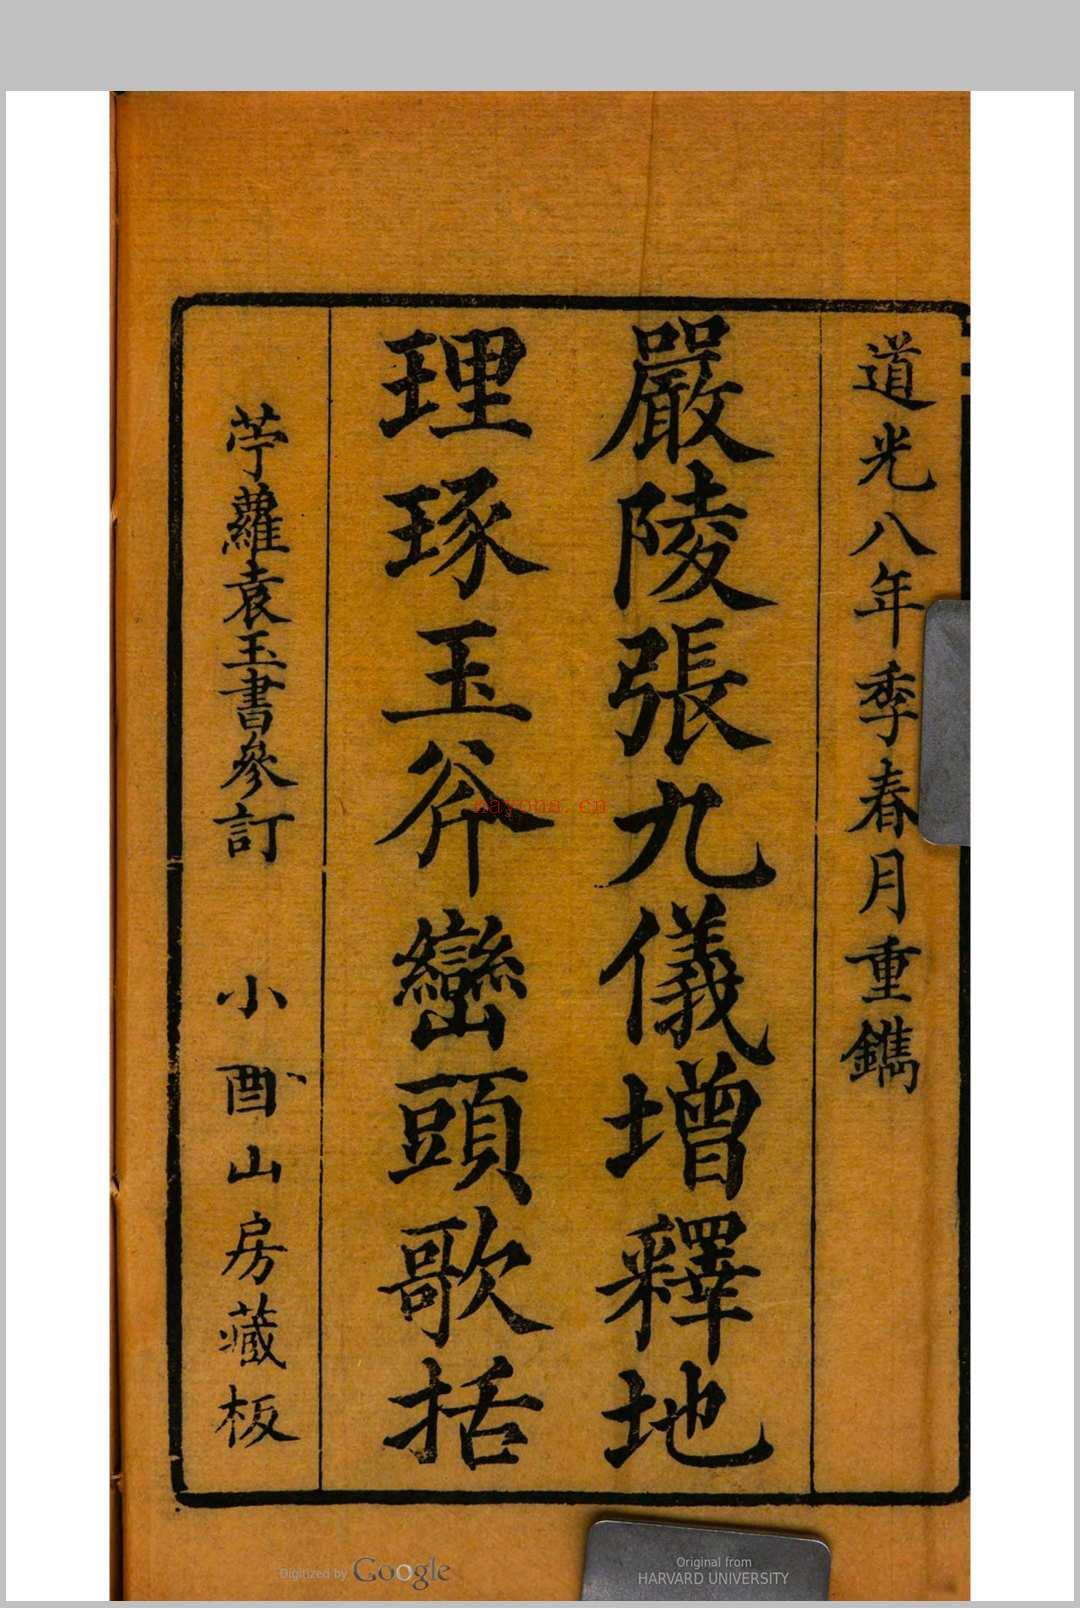 道光八年季春月重鐫
嚴陵張九儀增釋地
理琢玉斧巒頭歌括
苧蘿袁玉書參訂 小酉山房藏板
nayona.cn
Digitized by Google
Original from
HARVARD UNIVERSITY